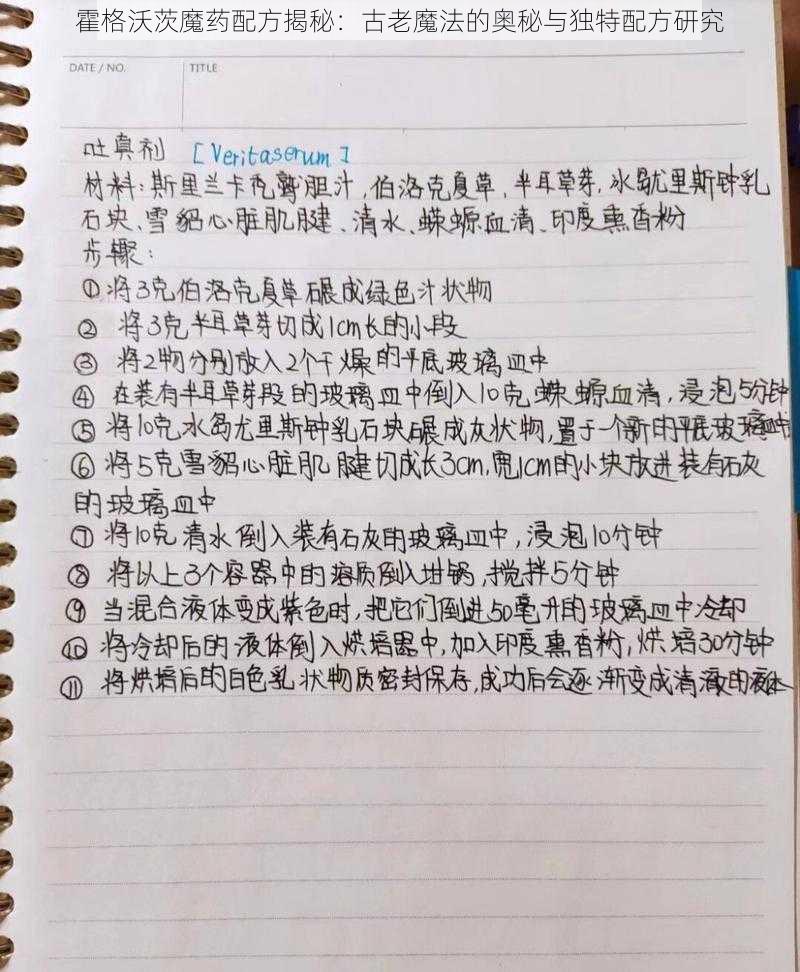 霍格沃茨魔药配方揭秘：古老魔法的奥秘与独特配方研究
DATE / NO.
TITLE
吐真剂 [Veritaserum]
材料:斯里兰卡秃鹫胆汁,伯洛克夏草,半耳草芽,冰岛尤里斯钟乳
石块、雪貂心脏肌腱、清水、蝾螈血清、印度熏香粉
步骤:
①将3克伯洛克夏草碾成绿色汁状物
② 将3克半耳草芽切成1cm长的小段
③ 将2物分别放入2个干燥的平底玻璃皿中
④ 在装有半耳草芽段的玻璃皿中倒入10克蝾螈血清,浸泡5分钟
⑤ 将10克冰岛尤里斯钟乳石块碾成灰状物,置于一个新的平底玻璃皿中
⑥ 将5克雪貂心脏肌腱切成长3cm,宽1cm的小块放进装有石灰
的玻璃皿中
⑦ 将10克清水倒入装有石灰的玻璃皿中,浸泡10分钟
⑧ 将以上3个容器中的溶质倒入坩锅,搅拌5分钟
⑨ 当混合液体变成紫色时,把它们倒进50毫升的玻璃皿中冷却
⑩ 将冷却后的液体倒入烘培器中,加入印度熏香粉,烘培30分钟
⑪ 将烘培后的白色乳状物质密封保存,成功后会逐渐变成清澈的液体